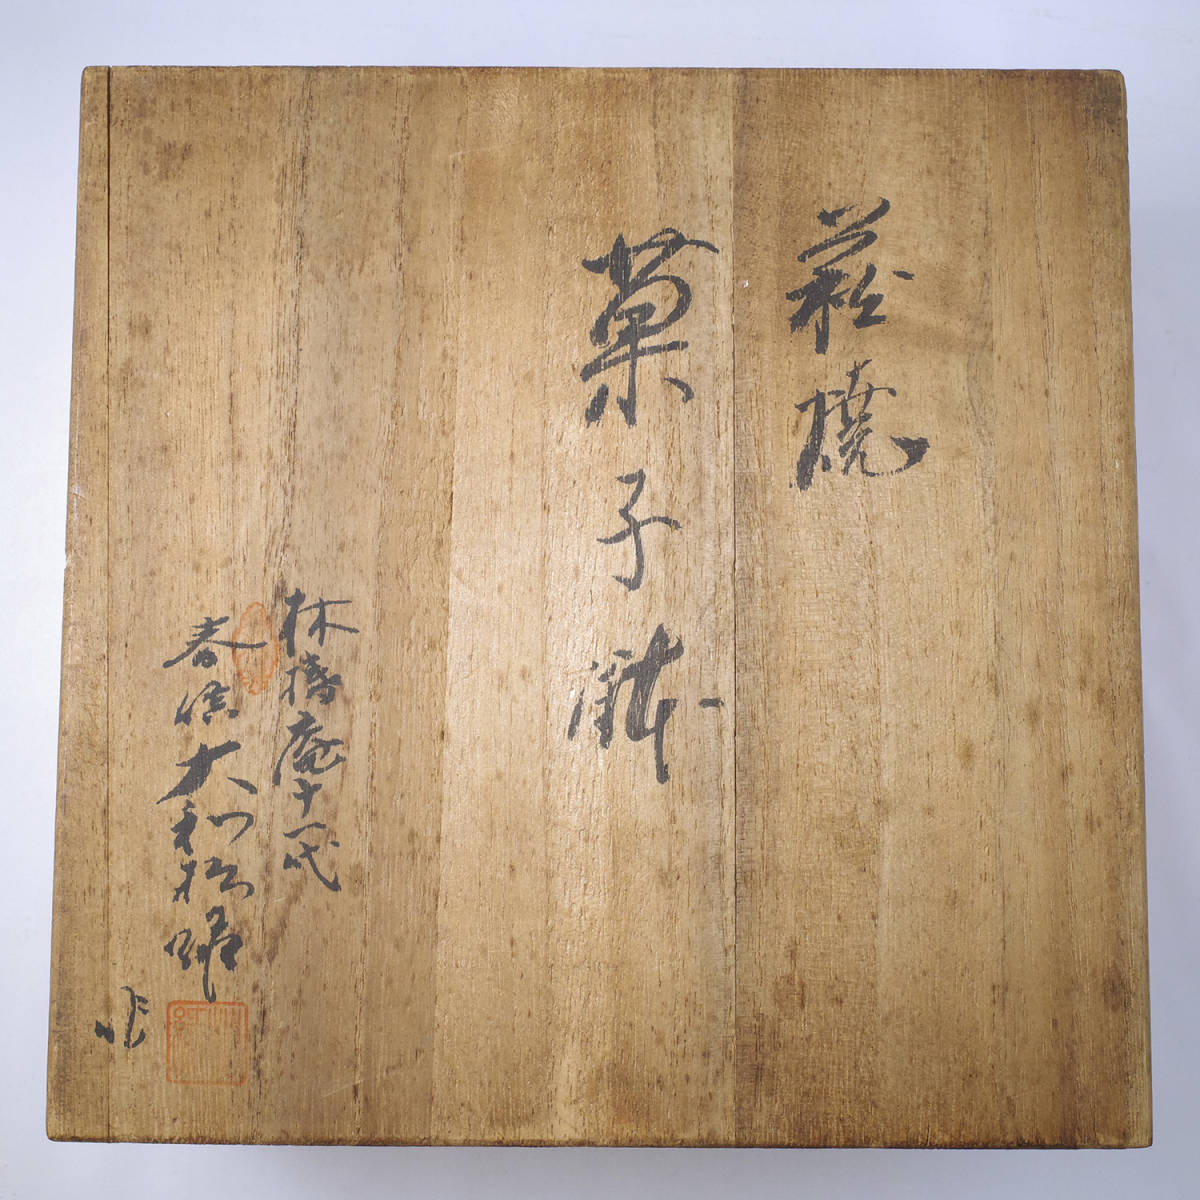 萩焼
菓子鉢
庵十一代
春信大和松
作